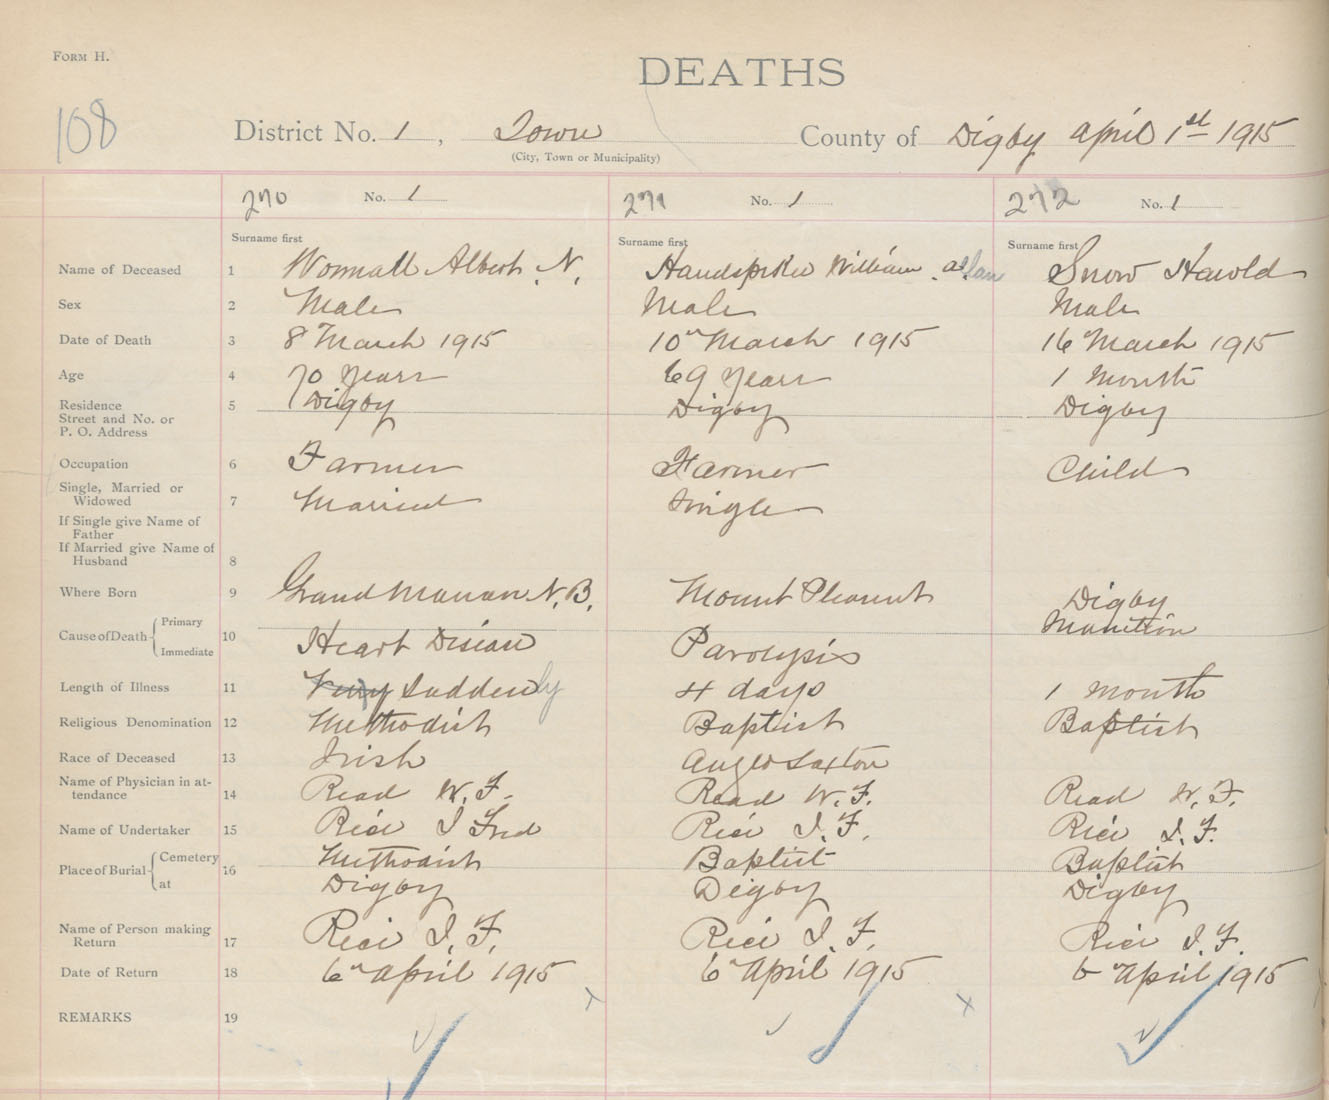 FORM H.
DEATHS
108
District No. 1, Town County of Digby April 1st 1915
(City, Town or Municipality)
270 No. 1 271 No. 1 272 No. 1
Surname first Surname first Surname first
Name of Deceased 1 Albert N. Handspiker William Snow Harold
Sex 2 Male Male Male
Date of Death 3 8 March 1915 10th March 1915 16 March 1915
Age 4 70 years 69 years 1 Month
Residence 5 Digby Digby Digby
Street and No. or
P. O. Address
Occupation 6 Farmer Farmer Child
Single, Married or
Widowed 7 Married Single
If Single give Name of
Father
If Married give Name of
Husband 8
Where Born 9 Grand Manan N. B. Mount Pleasant Digby
Cause of Death Primary
Immediate 10 Heart Disease Paralysis
Length of Illness 11 Very Suddenly 4 days 1 month
Religious Denomination 12 Methodist Baptist Baptist
Race of Deceased 13 Irish Anglo Saxton
Name of Physician in at-
tendance 14 Read W. F. Read W. F. Read W. F.
Name of Undertaker 15 Rice I Fred Rice I. F. Rice I. F.
Place of Burial Cemetery 16 Methodist Baptist Baptist
at Digby Digby Digby
Name of Person making
Return 17 Rice I. F. Rice I. F. Rice I. F.
Date of Return 18 6th April 1915 6th April 1915 6th April 1915
REMARKS 19